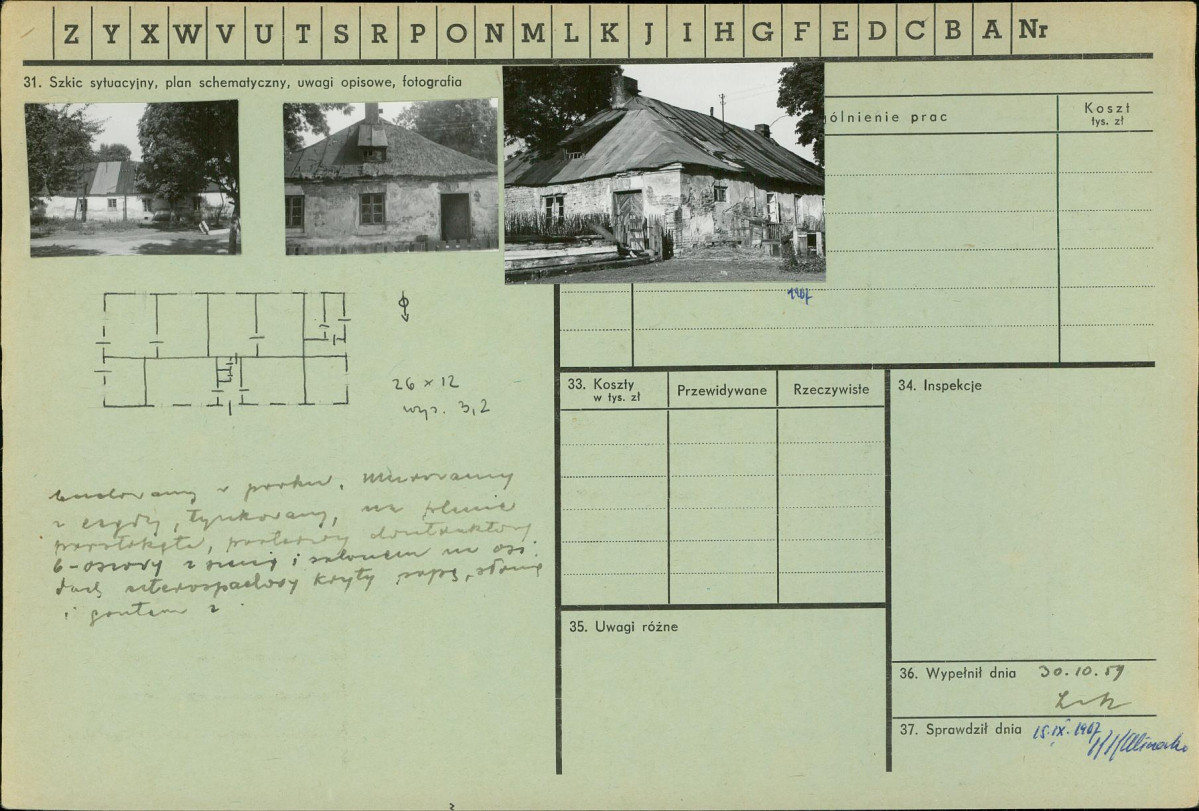 Z Y X W V U T S R P O N M L K J I H G F E D C B A Nr
31. Szkic sytuacyjny, plan schematyczny, uwagi opisowe, fotografia
ólnienie prac
Koszt
tys. zł
1967
26 x 12
wys. 3,2
budowany w parku, murowany
z cegły, tynkowany, na planie
prostokąta, parterowy dwutraktowy
6-osiowy z sienią i salonem na osi.
dach czterospadowy kryty papą, słomą
i gontem
33. Koszty
w tys. zł
Przewidywane
Rzeczywiste
34. Inspekcje
35. Uwagi różne
36. Wypełnił dnia 30.10.59
37. Sprawdził dnia 15.IX.1967